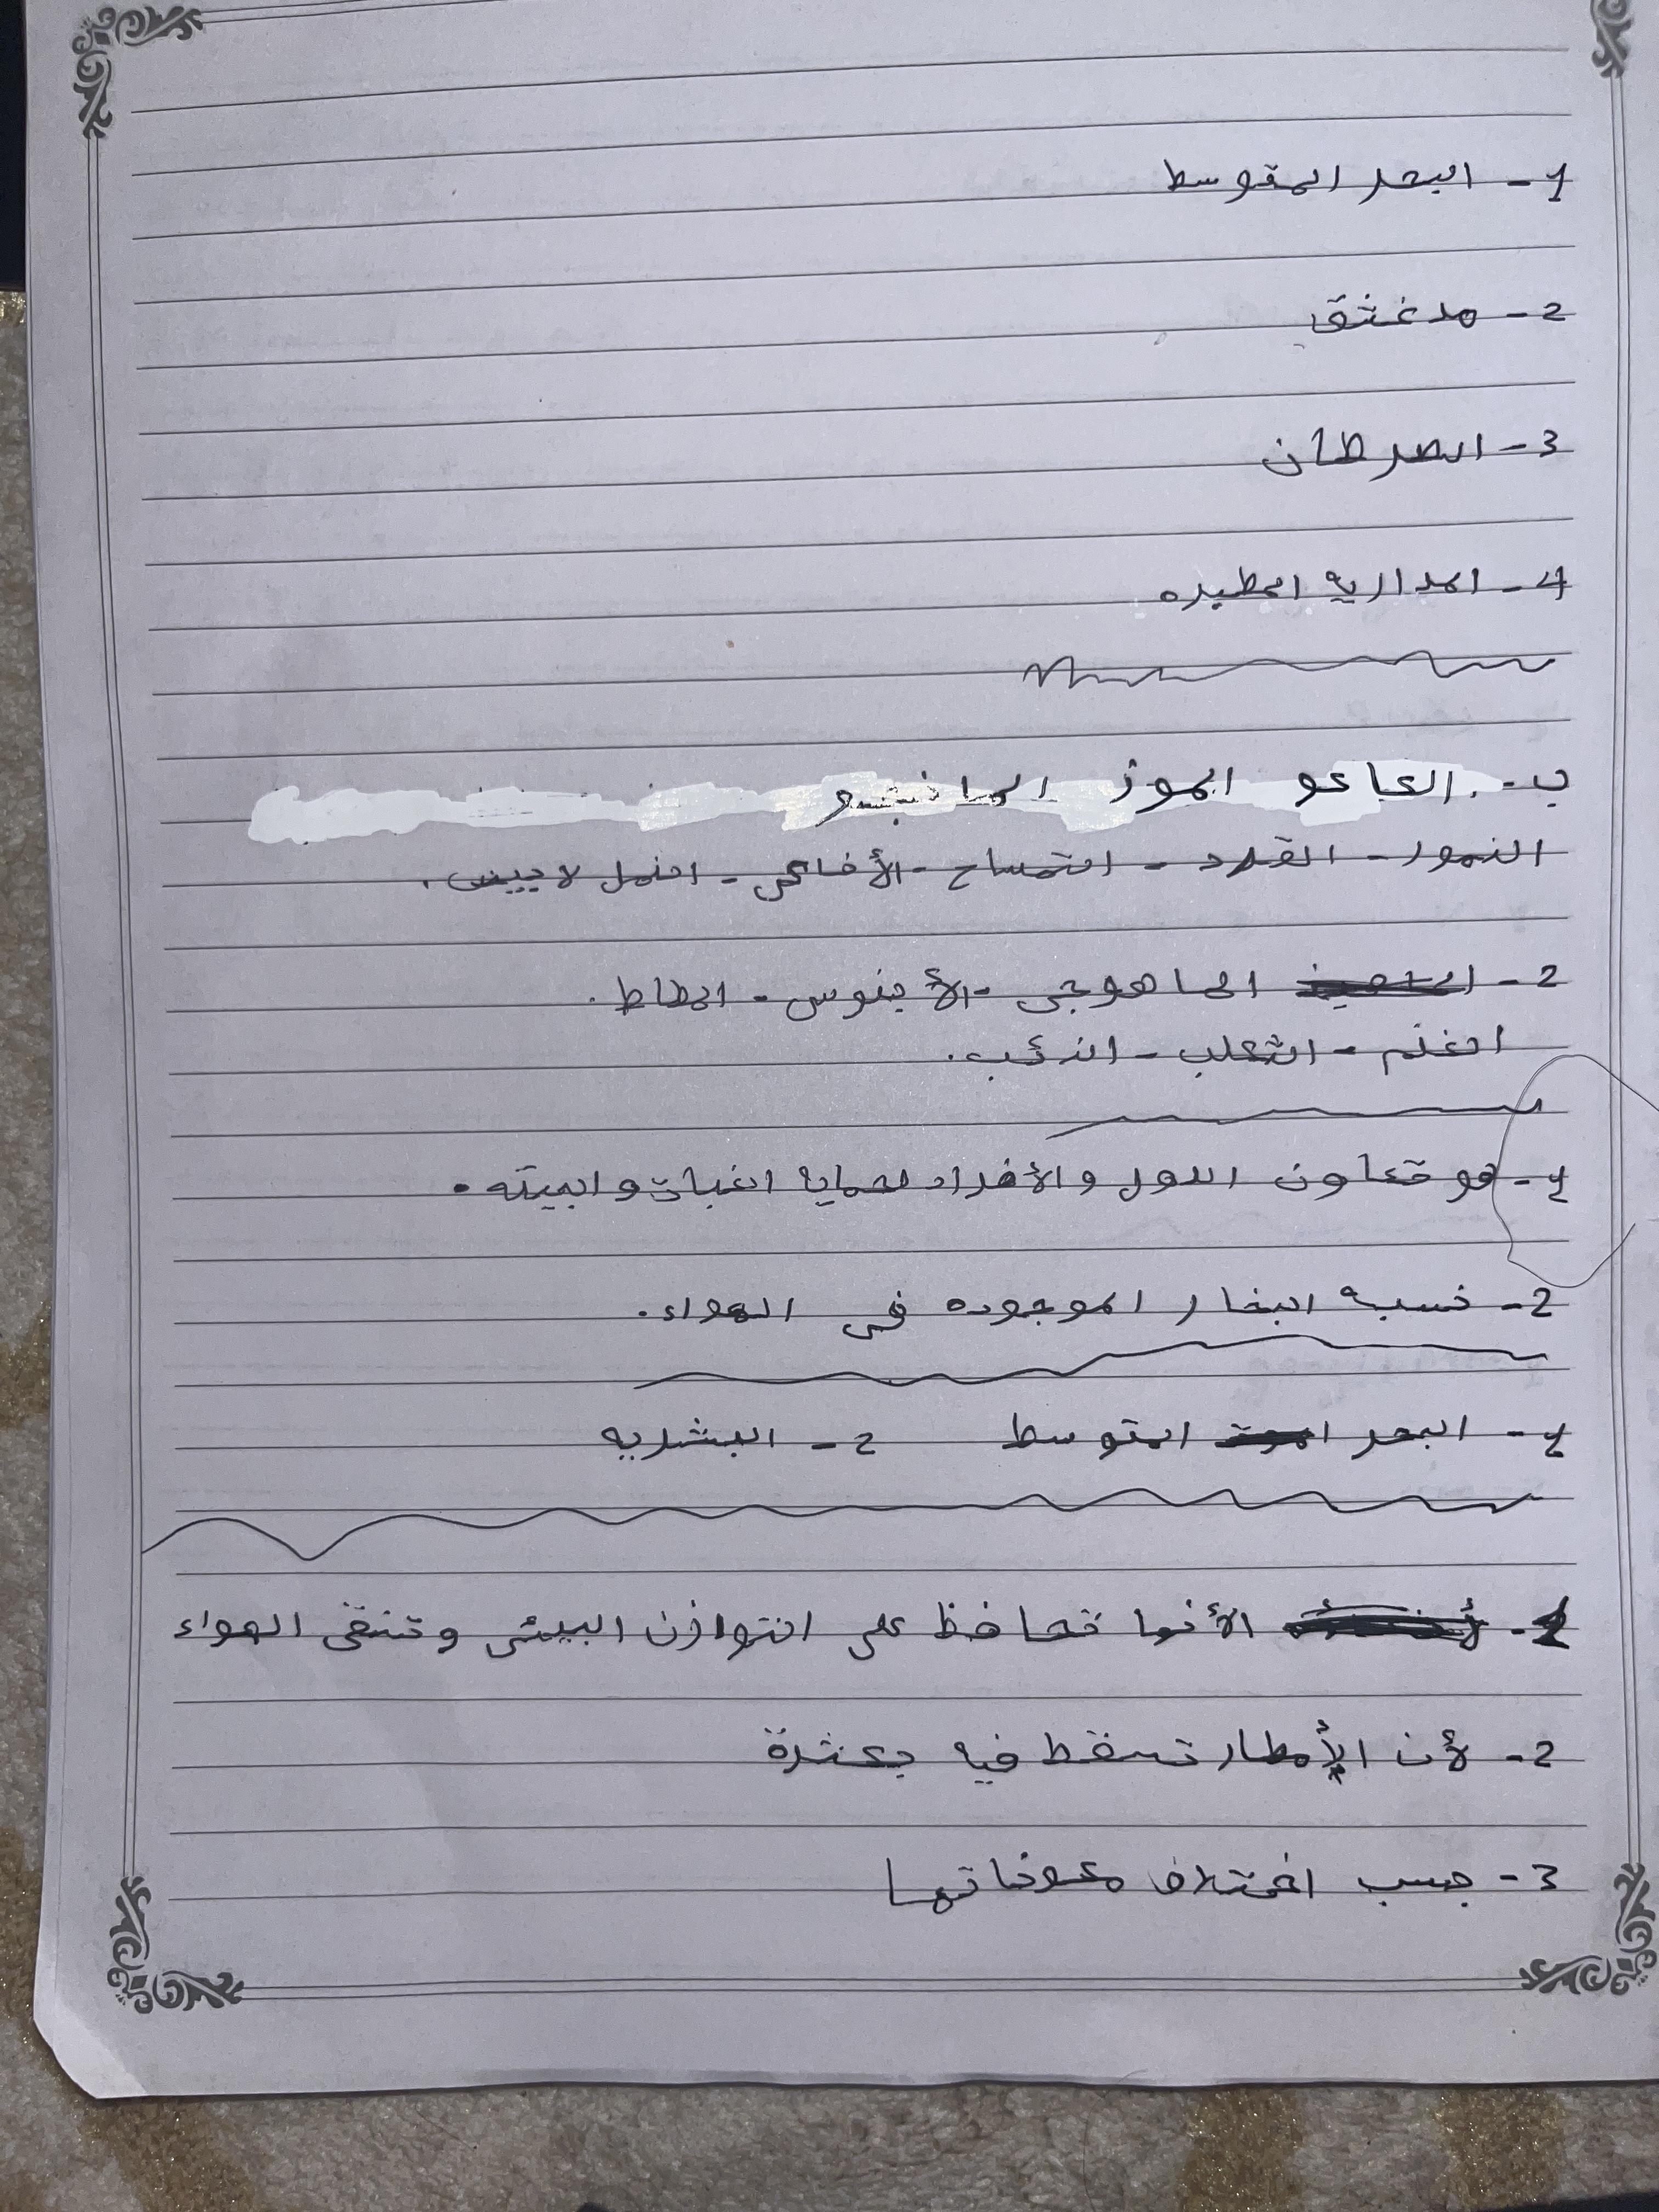 1- البحر المتوسط
2- مدغشق
3- الصرطان
4- المداريه المطيره
ب- الكاكو الموز المانجو
النمور - القرد - التمساح - الأفاعى - النمل لابيض.
2- الماهوجى - الأبنوس - المطاط.
الغنم - الثعلب - الذئب.
1- هو تعاون الدول والأفراد لحمايه الغبات والبيئه.
2- نسبه البخار الموجوده فى الهواء.
1- البحر المتوسط 2- البشريه
1- الأنها تحافظ على التوازن البيئى وتنقى الهواء
2- لأن الأمطار تسقط فيه بكثرة
3- حسب اختلاف مكوناتها